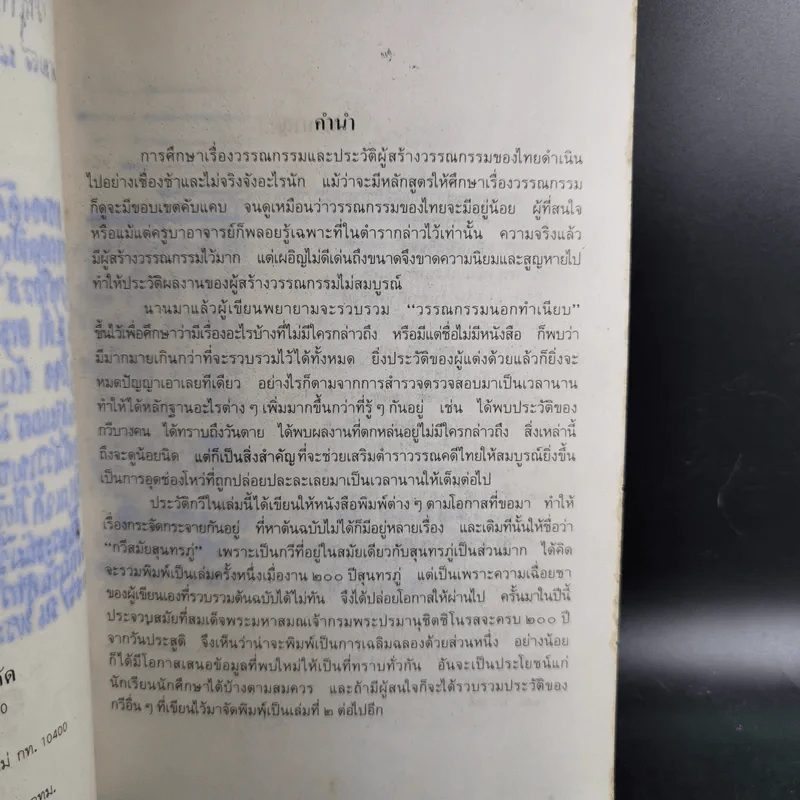 คำนำ
การศึกษาเรื่องวรรณกรรมและประวัติผู้สร้างวรรณกรรมของไทยดำเนิน
ไปอย่างเชื่องช้าและไม่จริงจังอะไรนัก แม้ว่าจะมีหลักสูตรให้ศึกษาเรื่องวรรณกรรม
ก็ดูจะมีขอบเขตคับแคบ จนดูเหมือนว่าวรรณกรรมของไทยจะมีอยู่น้อย ผู้ที่สนใจ
หรือแม้แต่ครูบาอาจารย์ก็พลอยรู้เฉพาะที่ในตำรากล่าวไว้เท่านั้น ความจริงแล้ว
มีผู้สร้างวรรณกรรมไว้มาก แต่เผอิญไม่ดีเด่นถึงขนาดจึงขาดความนิยมและสูญหายไป
ทำให้ประวัติผลงานของผู้สร้างวรรณกรรมไม่สมบูรณ์
นานมาแล้วผู้เขียนพยายามจะรวบรวม “วรรณกรรมนอกทำเนียบ”
ขึ้นไว้เพื่อศึกษาว่ามีเรื่องอะไรบ้างที่ไม่มีใครกล่าวถึง หรือมีแต่ชื่อไม่มีหนังสือ ก็พบว่า
มีมากมายเกินกว่าที่จะรวบรวมไว้ได้ทั้งหมด ยิ่งประวัติของผู้แต่งด้วยแล้วก็ยิ่งจะ
หมดปัญญาเอาเลยทีเดียว อย่างไรก็ตามจากการสำรวจตรวจสอบมาเป็นเวลานาน
ทำให้ได้หลักฐานอะไรต่าง ๆ เพิ่มมากขึ้นกว่าที่รู้ ๆ กันอยู่ เช่น ได้พบประวัติของ
กวีบางคน ได้ทราบถึงวันตาย ได้พบผลงานที่ตกหล่นอยู่ไม่มีใครกล่าวถึง สิ่งเหล่านี้
ถึงจะดูน้อยนิด แต่ก็เป็นสิ่งสำคัญที่จะช่วยเสริมตำราวรรณคดีไทยให้สมบูรณ์ยิ่งขึ้น
เป็นการอุดช่องโหว่ที่ถูกปล่อยปละละเลยมาเป็นเวลานานให้เต็มต่อไป
ประวัติกวีในเล่มนี้ได้เขียนให้หนังสือพิมพ์ต่าง ๆ ตามโอกาสที่ขอมา ทำให้
เรื่องกระจัดกระจายกันอยู่ ที่หาต้นฉบับไม่ได้ก็มีอยู่หลายเรื่อง และเดิมทีนั้นให้ชื่อว่า
“กวีสมัยสุนทรภู่” เพราะเป็นกวีที่อยู่ในสมัยเดียวกับสุนทรภู่เป็นส่วนมาก ได้คิด
จะรวมพิมพ์เป็นเล่มครั้งหนึ่งเมื่องาน ๒๐๐ ปีสุนทรภู่ แต่เป็นเพราะความเฉื่อยชา
ของผู้เขียนเองที่รวบรวมต้นฉบับได้ไม่ทัน จึงได้ปล่อยโอกาสให้ผ่านไป ครั้นมาในปีนี้
ประจวบสมัยที่สมเด็จพระมหาสมณเจ้ากรมพระปรมานุชิตชิโนรสจะครบ ๒๐๐ ปี
จากวันประสูติ จึงเห็นว่าน่าจะพิมพ์เป็นการเฉลิมฉลองด้วยส่วนหนึ่ง อย่างน้อย
ก็ได้มีโอกาสเสนอข้อมูลที่พบใหม่ให้เป็นที่ทราบทั่วกัน อันจะเป็นประโยชน์แก่
นักเรียนนักศึกษาได้บ้างตามสมควร และถ้ามีผู้สนใจก็จะได้รวบรวมประวัติของ
กวีอื่น ๆ ที่เขียนไว้มาจัดพิมพ์เป็นเล่มที่ ๒ ต่อไปอีก
กท. 10400